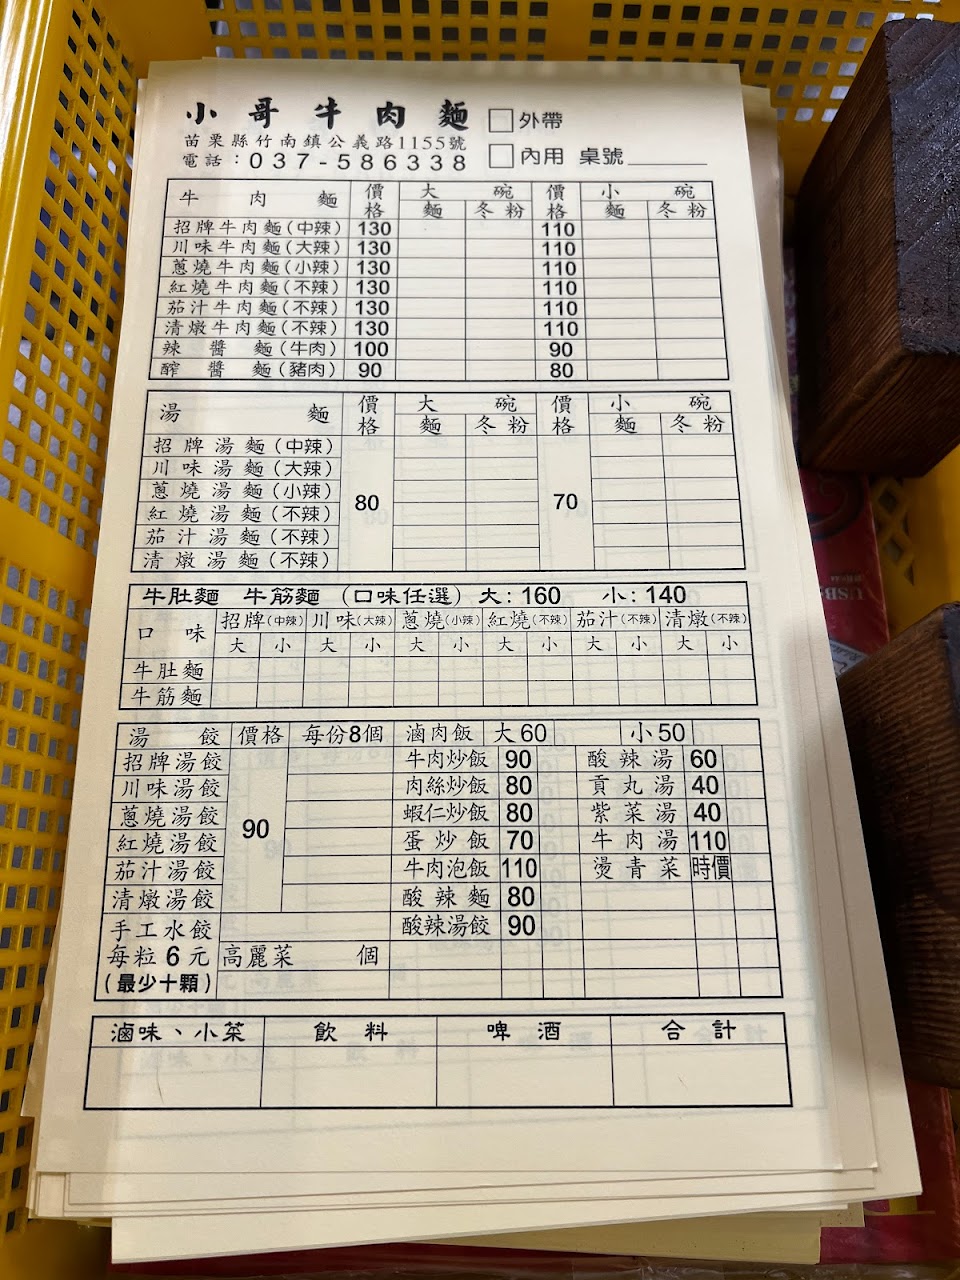 小哥牛肉麵 □外帶
苗栗縣竹南鎮公義路1155號
電話：037-586338 □內用 桌號
牛肉麵 價格 大碗 價格 小碗
麵 冬粉 麵 冬粉
招牌牛肉麵(中辣) 130 110
川味牛肉麵(大辣) 130 110
蔥燒牛肉麵(小辣) 130 110
紅燒牛肉麵(不辣) 130 110
茄汁牛肉麵(不辣) 130 110
清燉牛肉麵(不辣) 130 110
辣醬麵(牛肉) 100 90
醡醬麵(豬肉) 90 80
湯麵 價格 大碗 價格 小碗
麵 冬粉 麵 冬粉
招牌湯麵(中辣)
川味湯麵(大辣)
蔥燒湯麵(小辣)
80 70
紅燒湯麵(不辣)
茄汁湯麵(不辣)
清燉湯麵(不辣)
牛肚麵 牛筋麵 (口味任選) 大:160 小:140
口味 招牌(中辣) 川味(大辣) 蔥燒(小辣) 紅燒(不辣) 茄汁(不辣) 清燉(不辣)
大 小 大 小 大 小 大 小 大 小 大 小
牛肚麵
牛筋麵
湯餃 價格 每份8個 滷肉飯 大60 小50
招牌湯餃 牛肉炒飯 90 酸辣湯 60
川味湯餃 肉絲炒飯 80 貢丸湯 40
蔥燒湯餃 90 蝦仁炒飯 80 紫菜湯 40
紅燒湯餃 蛋炒飯 70 牛肉湯 110
茄汁湯餃 牛肉泡飯 110 燙青菜 時價
清燉湯餃 酸辣麵 80
手工水餃 酸辣湯餃 90
每粒6元 高麗菜 個
(最少十顆)
滷味、小菜 飲料 啤酒 合計